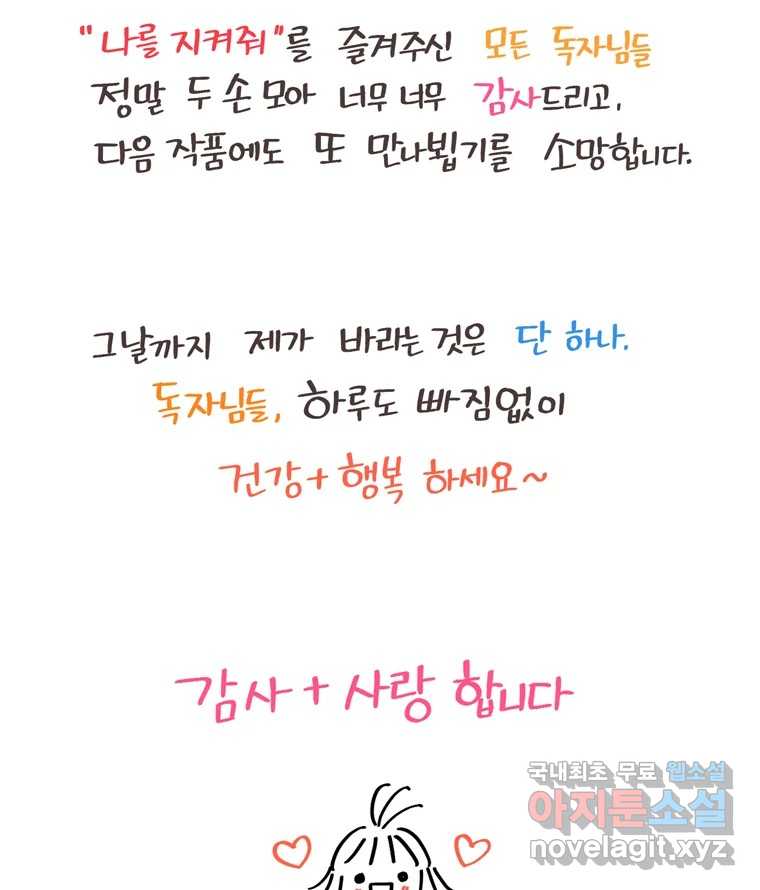 "나를 지켜줘"를 즐겨주신 모든 독자님들
정말 두 손 모아 너무 너무 감사드리고,
다음 작품에도 또 만나뵙기를 소망합니다.
그날까지 제가 바라는 것은 단 하나.
독자님들, 하루도 빠짐없이
건강+행복 하세요~
감사+사랑 합니다
국내최초 무료 웹소설
아지툰소설
novelagit.xyz